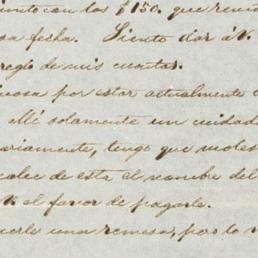 junto con los $150. que remi
sa fecha. Siento dar á V.
reglo de mis cuentas.
uosa por estar actualmente
Allí solamente un cuidad
ariamente, tengo que moles
calce de esta el nombre del
V. el favor de pagarle.
cerle una remesa, pero lo